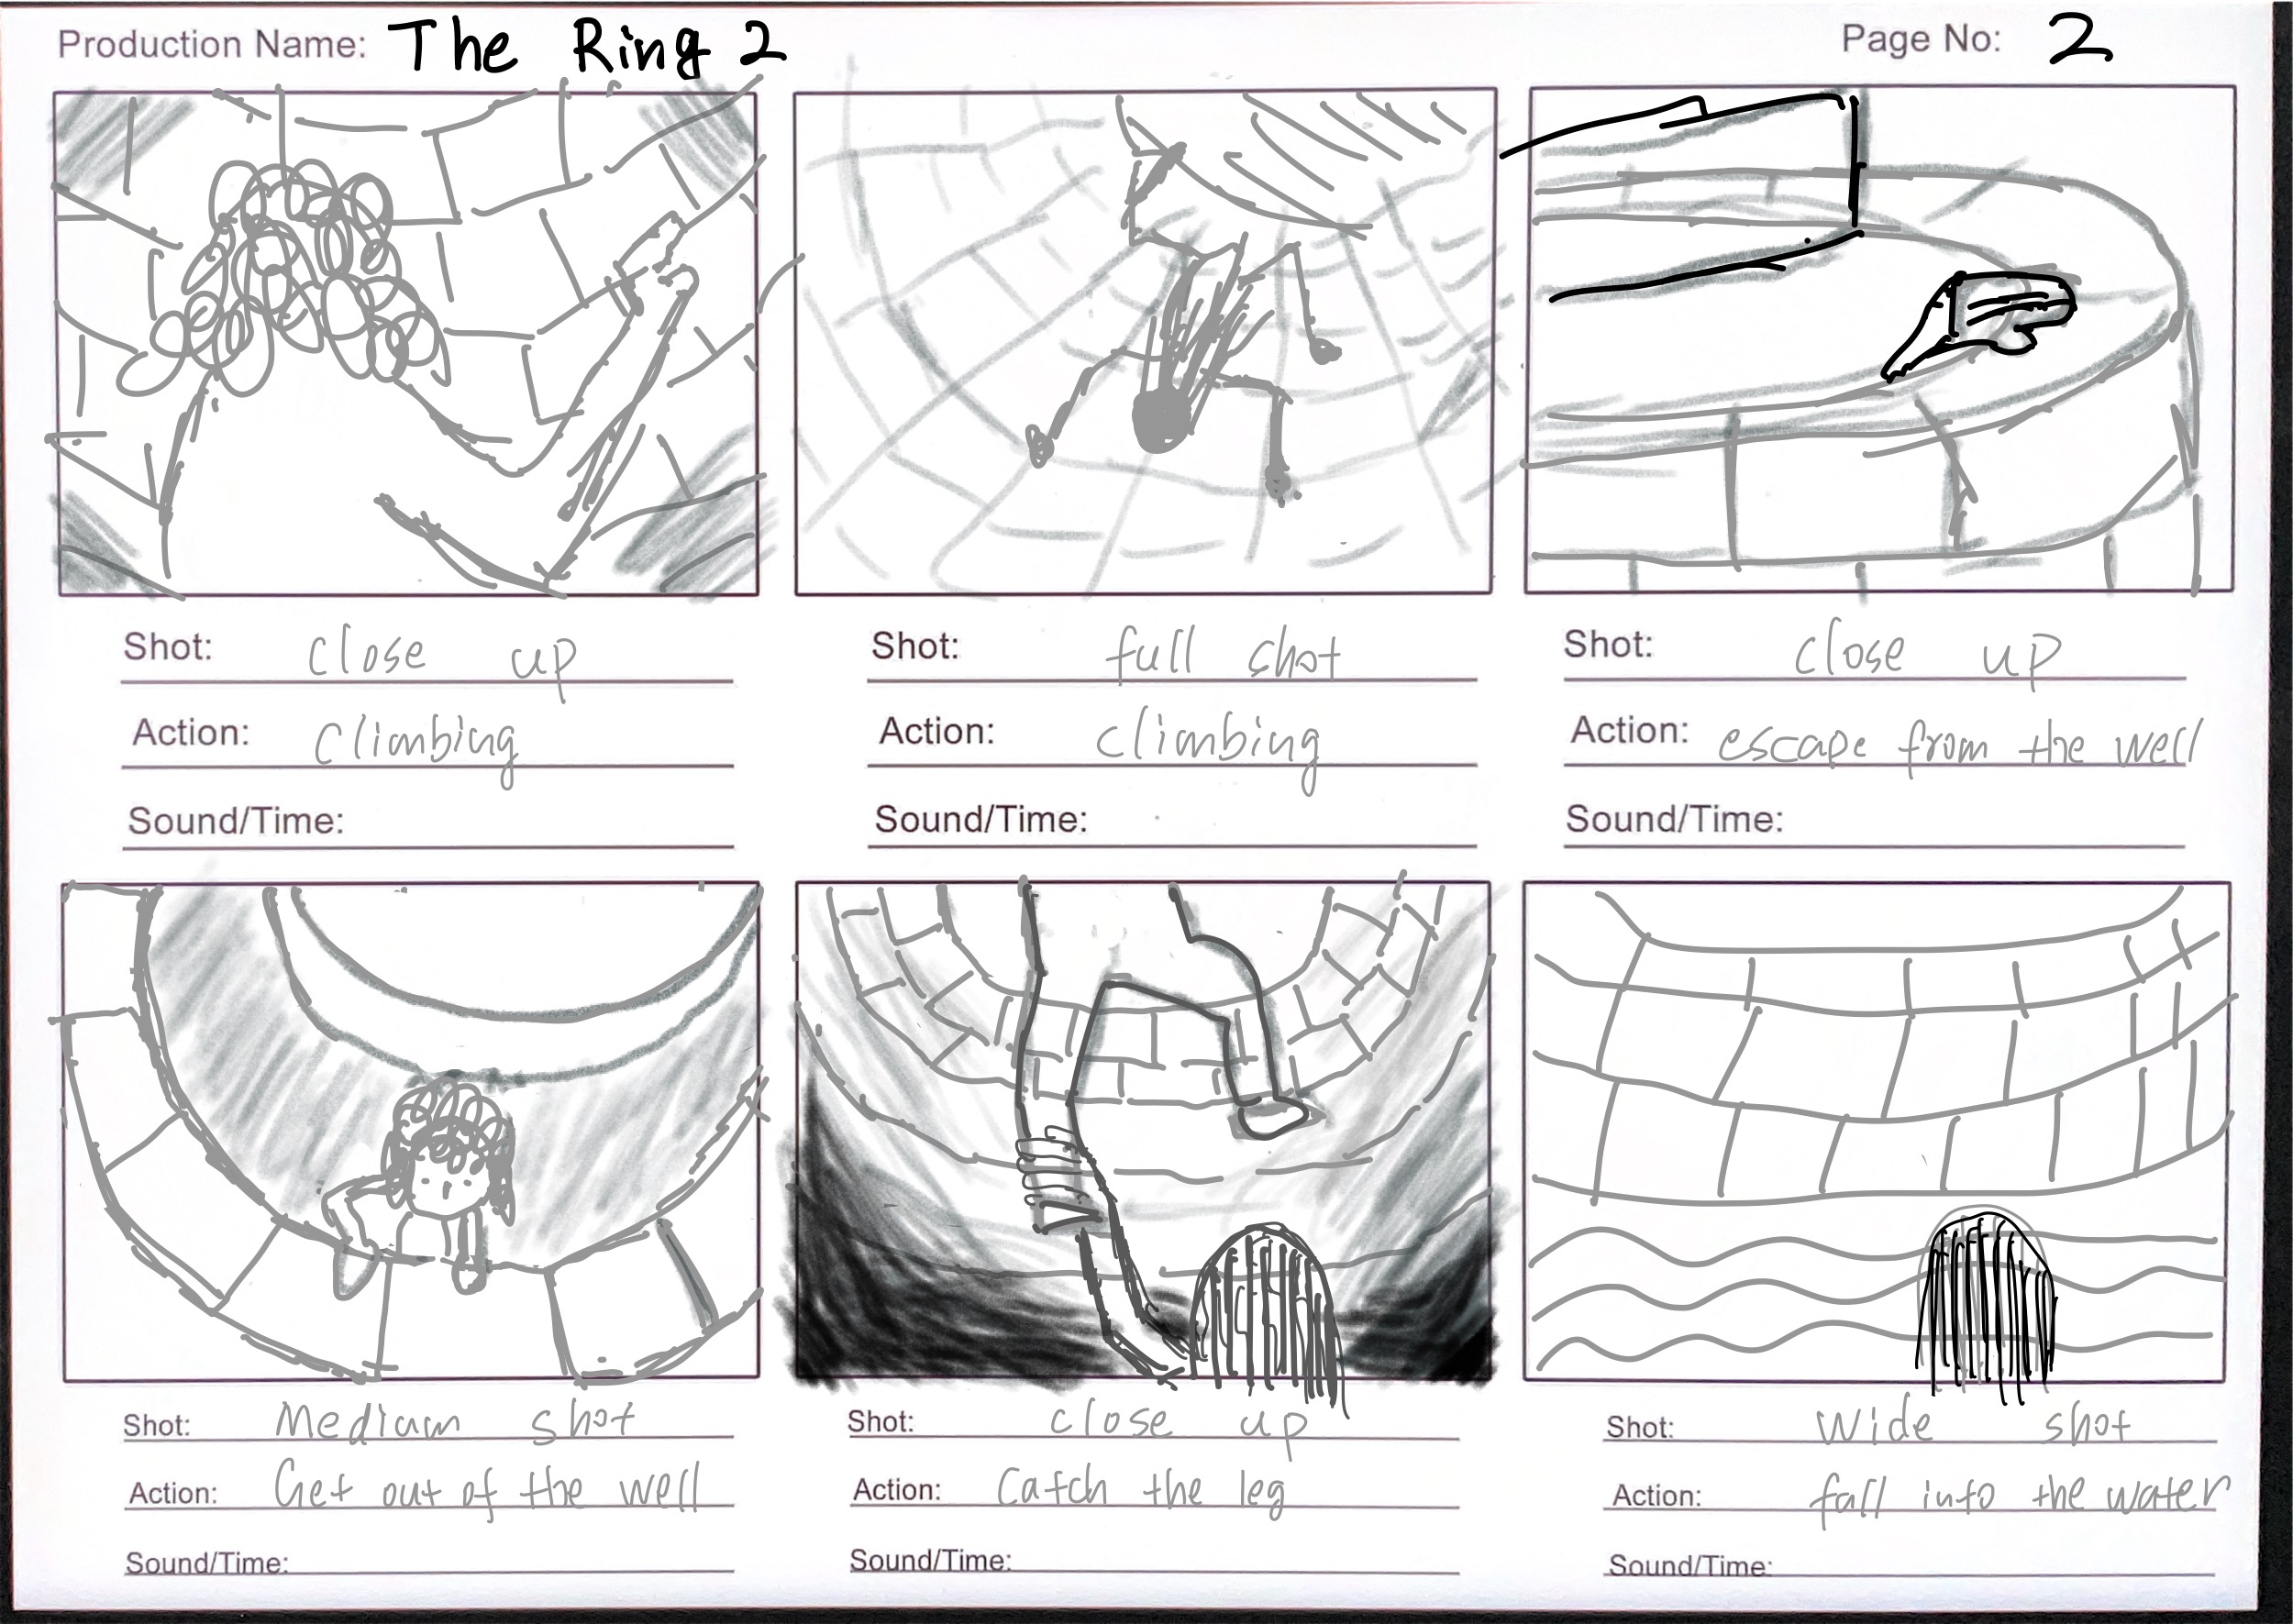 Production Name: The Ring 2
Page No: 2
Shot: close up
Action: climbing
Sound/Time:
Shot: full shot
Action: climbing
Sound/Time:
Shot: close up
Action: escape from the well
Sound/Time:
Shot: Medium shot
Action: Get out of the well
Sound/Time:
Shot: close up
Action: Catch the leg
Sound/Time:
Shot: Wide shot
Action: fall into the water
Sound/Time: